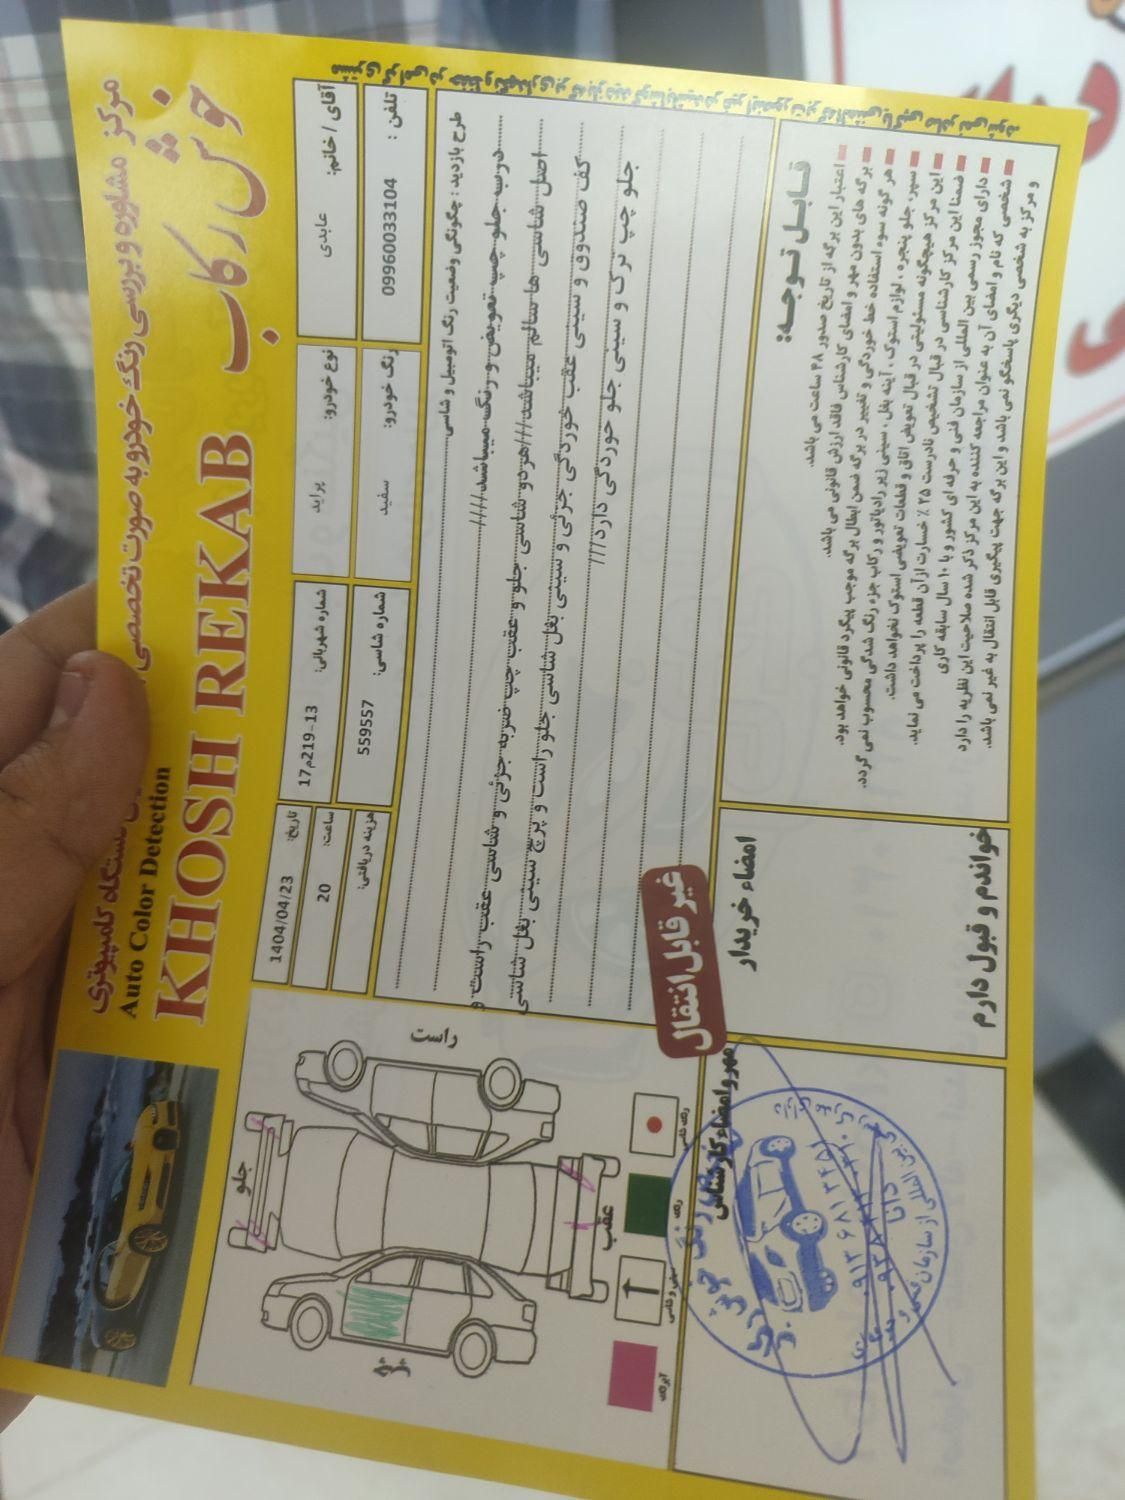 مرکز مشاوره و بررسی رنگ خودرو به صورت تخصصی
دستگاه کامپیوتری
خوش رکاب
Auto Color Detection
KHOSH REKAB
آقای / خانم: عابدی
نوع خودرو: پراید
شماره شهربانی: 13-219م17
تاریخ: 1404/04/23
ساعت: 20
تلفن : 09960033104
رنگ خودرو: سفید
شماره شاسی: 559557
هزینه دریافتی:
طرح بازدید : چگونگی وضعیت رنگ اتومبیل و شاسی
درب جلو چپ تعویض و رنگ میباشد////
اصل شاسی ها سالم میباشد///هر دو شاسی جلو و عقب چپ ضربه جزئی و شاسی عقب راست و
کف صندوق و سینی عقب خوردگی جزئی و سینی بغل شاسی جلو راست و پرچ سینی بغل شاسی
جلو چپ ترک و سینی جلو خوردگی دارد///
غیر قابل انتقال
راست
جلو
عقب
چپ
رنگ
آبرنگ
قابل توجه:
اعتبار این برگه از تاریخ صدور ۴۸ ساعت می باشد.
برگه های بدون مهر و امضای کارشناس فاقد ارزش قانونی می باشد.
هر گونه سوء استفاده خط خوردگی و تغییر در برگه ضمن ابطال برگه موجب پیگرد قانونی خواهد بود.
سپر، جلو پنجره، لوازم استوک، آینه بغل، سینی زیر رادیاتور و رکاب جزء رنگ شدگی محسوب نمی گردد.
این مرکز هیچگونه مسئولیتی در قبال تعویض اتاق و قطعات تعویضی استوک نخواهد داشت.
ضمنا این مرکز کارشناسی در قبال تشخیص نادرست ۲۵ ٪ خسارت از آن قطعه را پرداخت می نماید.
دارای مجوز رسمی بین المللی از سازمان فنی و حرفه ای کشور و با ۱۰ سال سابقه کاری
شخصی که نام و امضای آن به عنوان مراجعه کننده به این مرکز ذکر شده صلاحیت این نظریه را دارد
و مرکز به شخصی دیگری پاسخگو نمی باشد و این برگه جهت پیگیری قابل انتقال به غیر نمی باشد.
امضاء خریدار
خواندم و قبول دارم
مهر و امضاء کارشناس
دانا